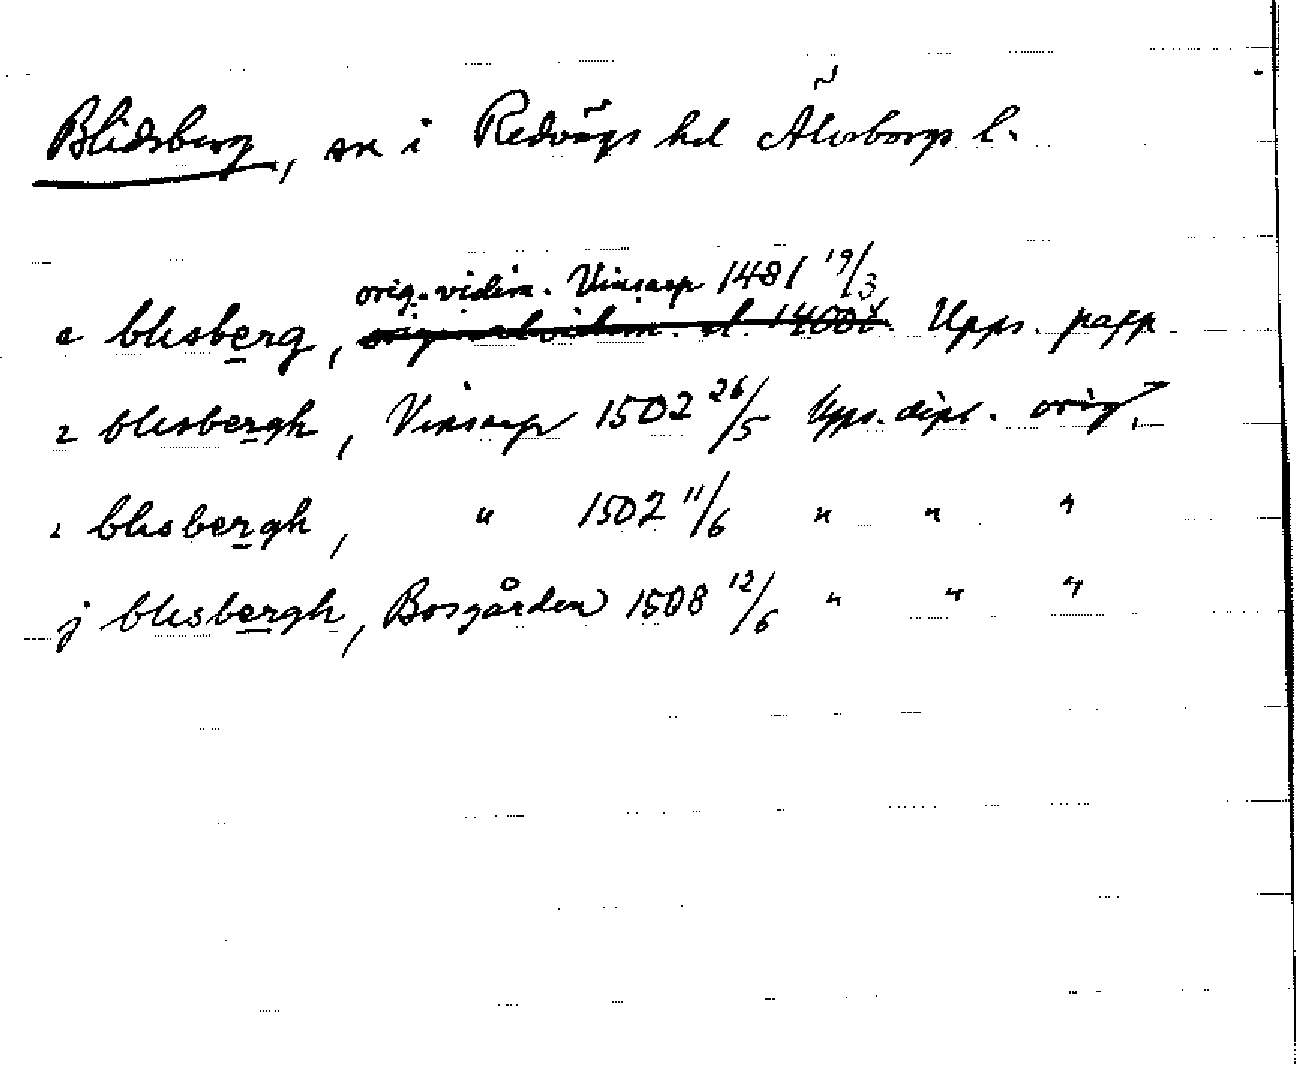 Blidsberg, sn i Redvägs hd Älvsborgs l.
orig. vidim. Vinsarp 1481 19/3
a blisberg, Upps. papp.
i blisbergh, Vinsarp 1502 26/5 Upps. dipl. orig.
i blisbergh, " 1502 11/6 " " "
j blisbergh, Bosgården 1508 12/6 " " "